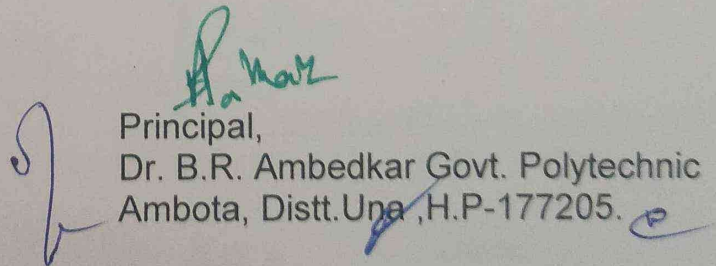 Principal,
Dr. B.R. Ambedkar Govt. Polytechnic
Ambota, Distt.Una ,H.P-177205.